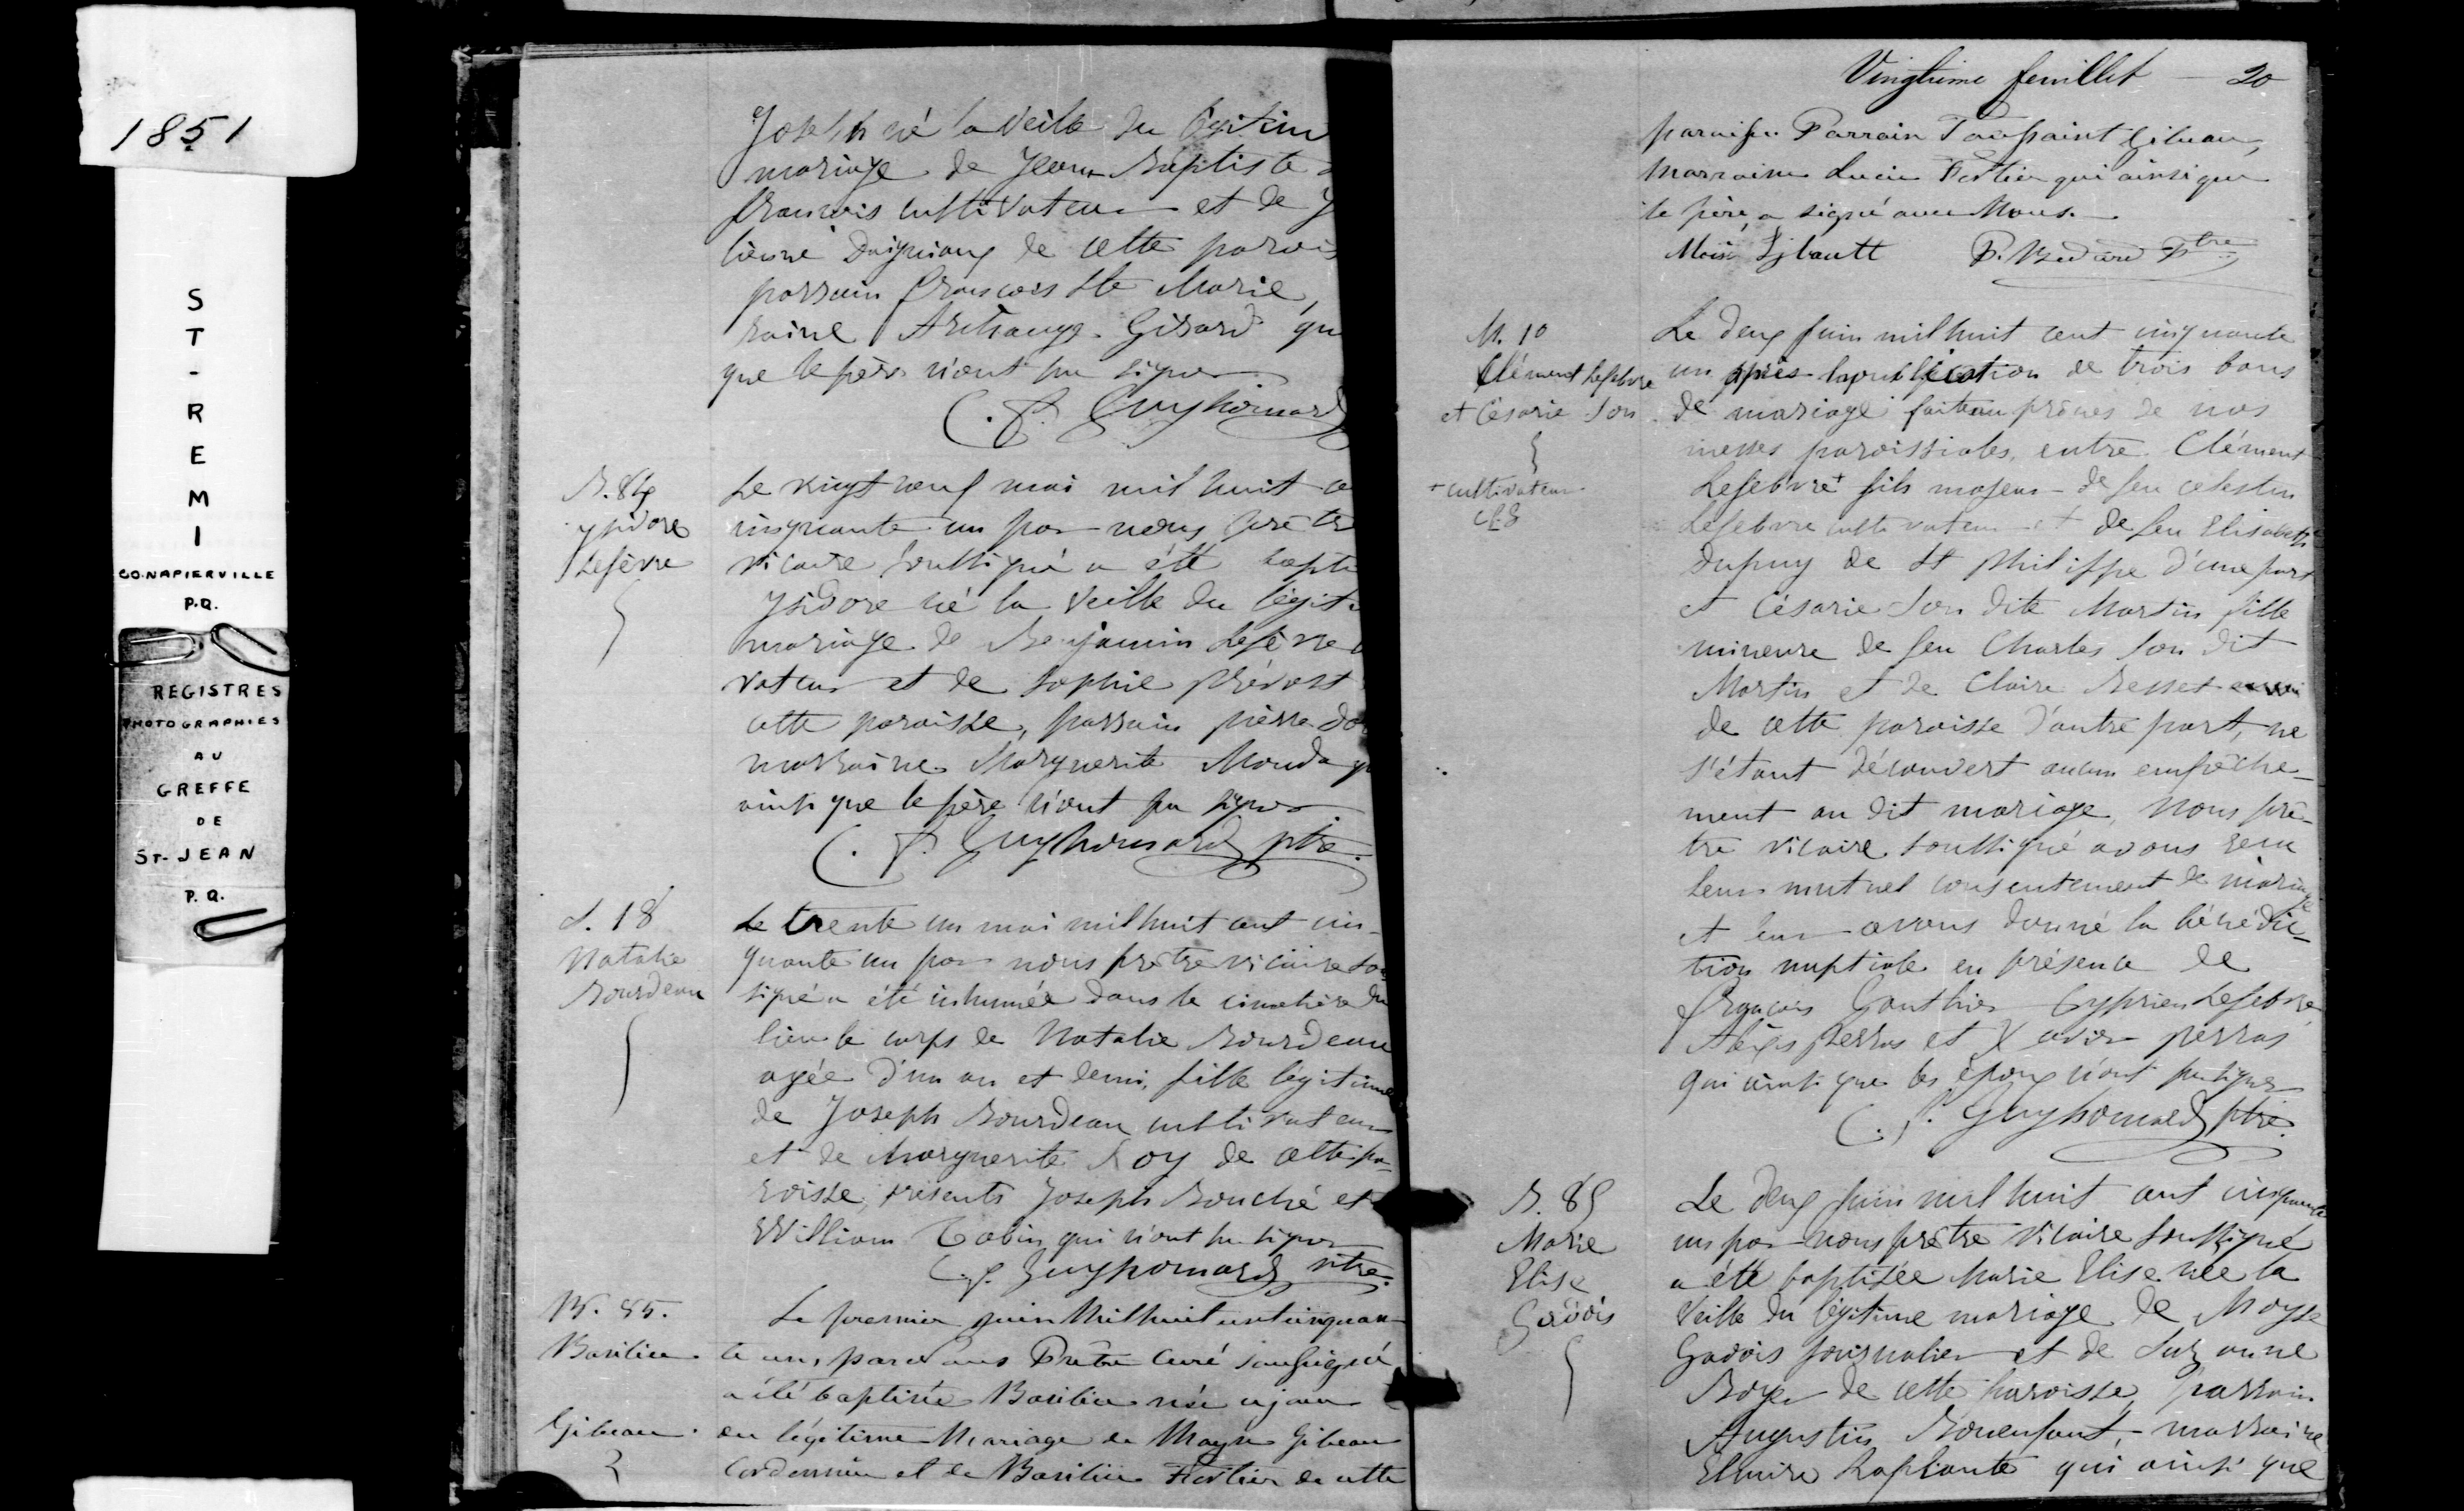 1851
ST-REMI
CO. NAPIERVILLE
P.Q.
REGISTRES
PHOTOGRAPHIES
AU
GREFFE
DE
ST-JEAN
P.Q.
Joseph né la veille du légitim
mariage de Jean Baptiste
francois cultivateur et de J
lienne de cette parois
parrain francois Ste Marie,
raine Archange Girard qu
que le père n'ont pu signer
C. P. Guyhomard
B. 84
Ysidore
Lefèvre
Le vingt neuf mai mil huit ce
cinquante un par nous prêtre
vicaire soussigné a été bapti
Ysidore né la veille du légiti
mariage de Benjamin Lefèvre
vateur et de Sophie prévost
cette paroisse, parrain pierre
marraine Marguerite
ainsi que le père n'ont pu signer
C. P. Guyhomard ptre.
S. 18
Natalie
Bourdeau
Le trente un mai mil huit cent cin-
quante un par nous prêtre vicaire sou
signé a été inhumée dans le cimetière du
lieu le corps de Natalie Bourdeau
agée d'un an et demi, fille légitime
de Joseph Bourdeau cultivateur
et de Marguerite Roy de cette pa-
roisse, présents Joseph Bouché et
William Tobin qui n'ont pu signer
C. P. Guyhomard ptre.
B. 85.
Basilice
Gibeau.
Le premier juin Mil huit cent cinquan-
te un, par Nous Prêtre Curé soussigné
a été baptisée Basilice née ce jour
du légitime Mariage de Moyse Gibeau
Cordonnier et de Basilice Fortier de cette
Vingtième feuillet - 20
paroisse Parrain Toussaint Gibeau,
Marraine Lucie Fortier qui ainsi que
le père, a signé avec Nous.
P. Bédard Ptre
M. 10
Clément Lefebvre
et Césarie Son
+ cultivateur
Le deux juin mil huit cent cinquante
un après la publication de trois bans
de mariage faite aux prônes de nos
messes paroissiales, entre Clément
Lefebvre+ fils majeur de feu celestin
Lefebvre cultivateur et de feu Elisabeth
Dupuy de St Philippe d'une part
et Césarie Son dite Martin fille
mineure de feu Charles Son dit
Martin et de Claire Besset
de cette paroisse d'autre part, ne
s'étant découvert aucun empêche-
ment au dit mariage, Nous prê-
tre vicaire soussigné avons reçu
leur mutuel consentement de mariage
et leur avons donné la bénédic-
tion nuptiale en présence de
françois Gauthier Cyprien Lefebvre,
Alexis perras et Xavier perras
qui ainsi que les époux n'ont pu signer
C. P. Guyhomard ptre.
B. 85
Marie
Elise
Gadois
Le deux juin mil huit cent cinquante
un par nous prêtre vicaire soussigné
a été baptisée Marie Elise née la
veille du légitime mariage de Moyse
Gadois journalier et de Suzanne
Boyer de cette paroisse, parrain
Augustin Bonenfant, marraine
Elmire Laplante qui ainsi que